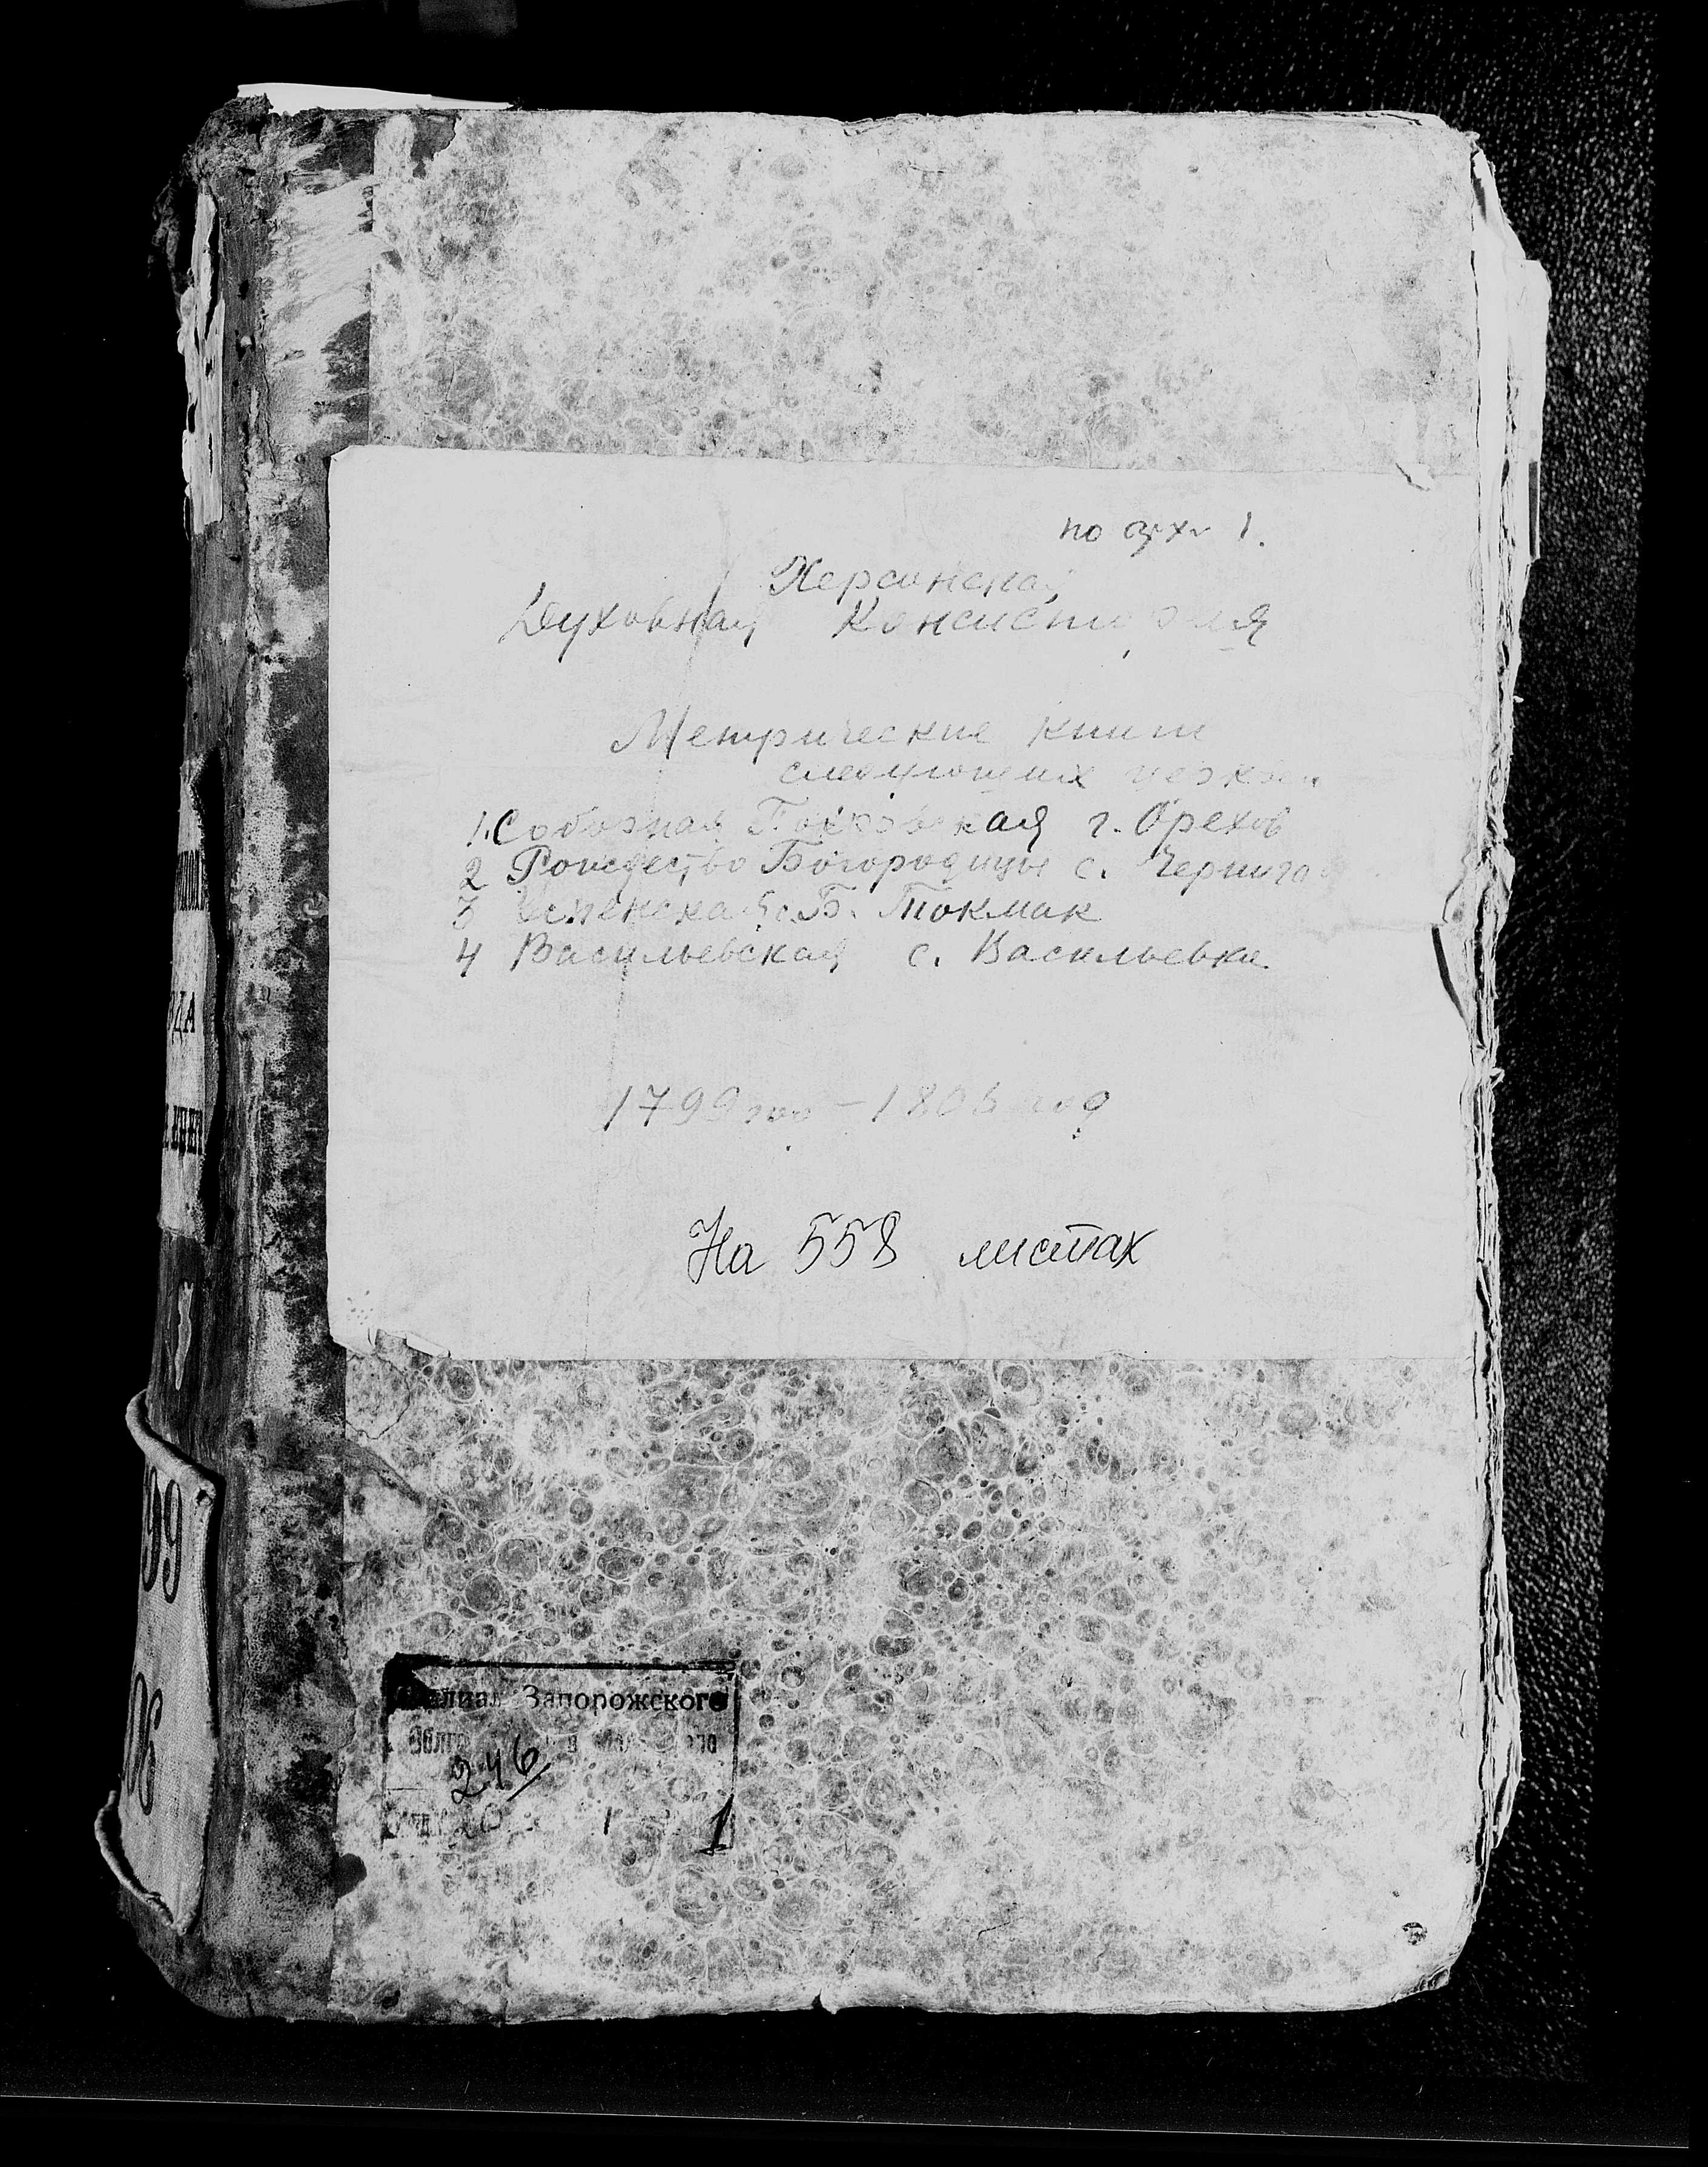 по арх 1.
Херсонская
Духовная Консистория
Метрические книги
следующих церквей
1. Соборная Покровская г. Орехов
2 Рождество Богородицы с. Черниго
3 Успенская с. Б. Токмак
4 Васильевская с. Васильевка
1799 год – 1806 год
На 558 листах
ДА
99
06
Филиал Запорожского
246
1